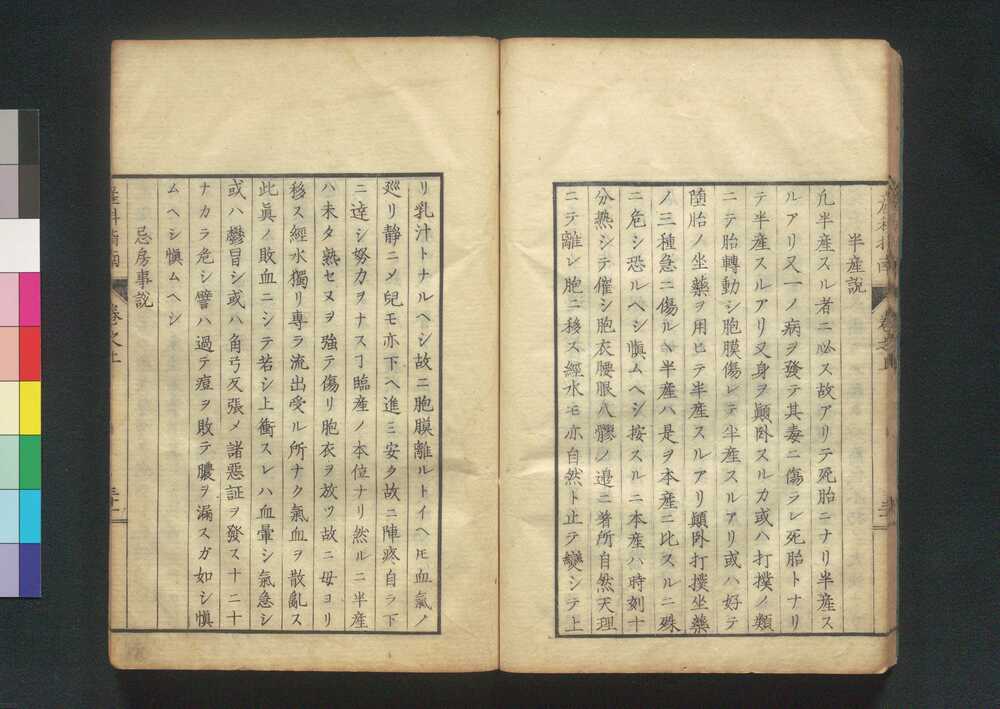 半産説
凢半産スル者ニ必ス故アリテ死胎ニナリ半産ス
ルアリ又一ノ病ヲ發テ其毒ニ傷ラレ死胎トナリ
テ半産スルアリ又身ヲ顚卧スルカ或ハ打撲ノ類
ニテ胎轉動シ胞膜傷レテ半産スルアリ或ハ好テ
堕胎ノ坐藥ヲ用ヒテ半産スルアリ顚卧打撲坐藥
ノ三種急ニ傷ル丶半産ハ是ヲ本産ニ比スルニ殊
ニ危シ恐ルヘシ愼ムヘシ按スルニ本産ハ時刻十
分熟シテ催シ胞衣腰眼八髎ノ邉ニ著所自然天理
ニテ離レ胞ニ移ス經水モ亦自然ト止テ變シテ上
リ乳汁トナルヘシ故ニ胞膜離ルトイヘ𪜈血氣ノ
廵リ静ニメ兒モ亦下ヘ進ミ安ク故ニ陣疼自ラ下
ニ逹シ努力ヲナスヿ臨産ノ本位ナリ然ルニ半産
ハ未タ熟セヌヲ強テ傷リ胞衣ヲ放ツ故ニ母ヨリ
移ス經水獨リ專ラ流出受ル所ナク氣血ヲ散亂ス
此眞ノ敗血ニシテ若シ上衝スレハ血暈シ氣急シ
或ハ鬱冒シ或ハ角弓反張メ諸惡証ヲ發ス十ニ十
ナカラ危シ譬ハ過テ痘ヲ敗テ膿ヲ漏スガ如シ愼
ムヘシ愼ムヘシ
忌房事説
産科指南
卷之上